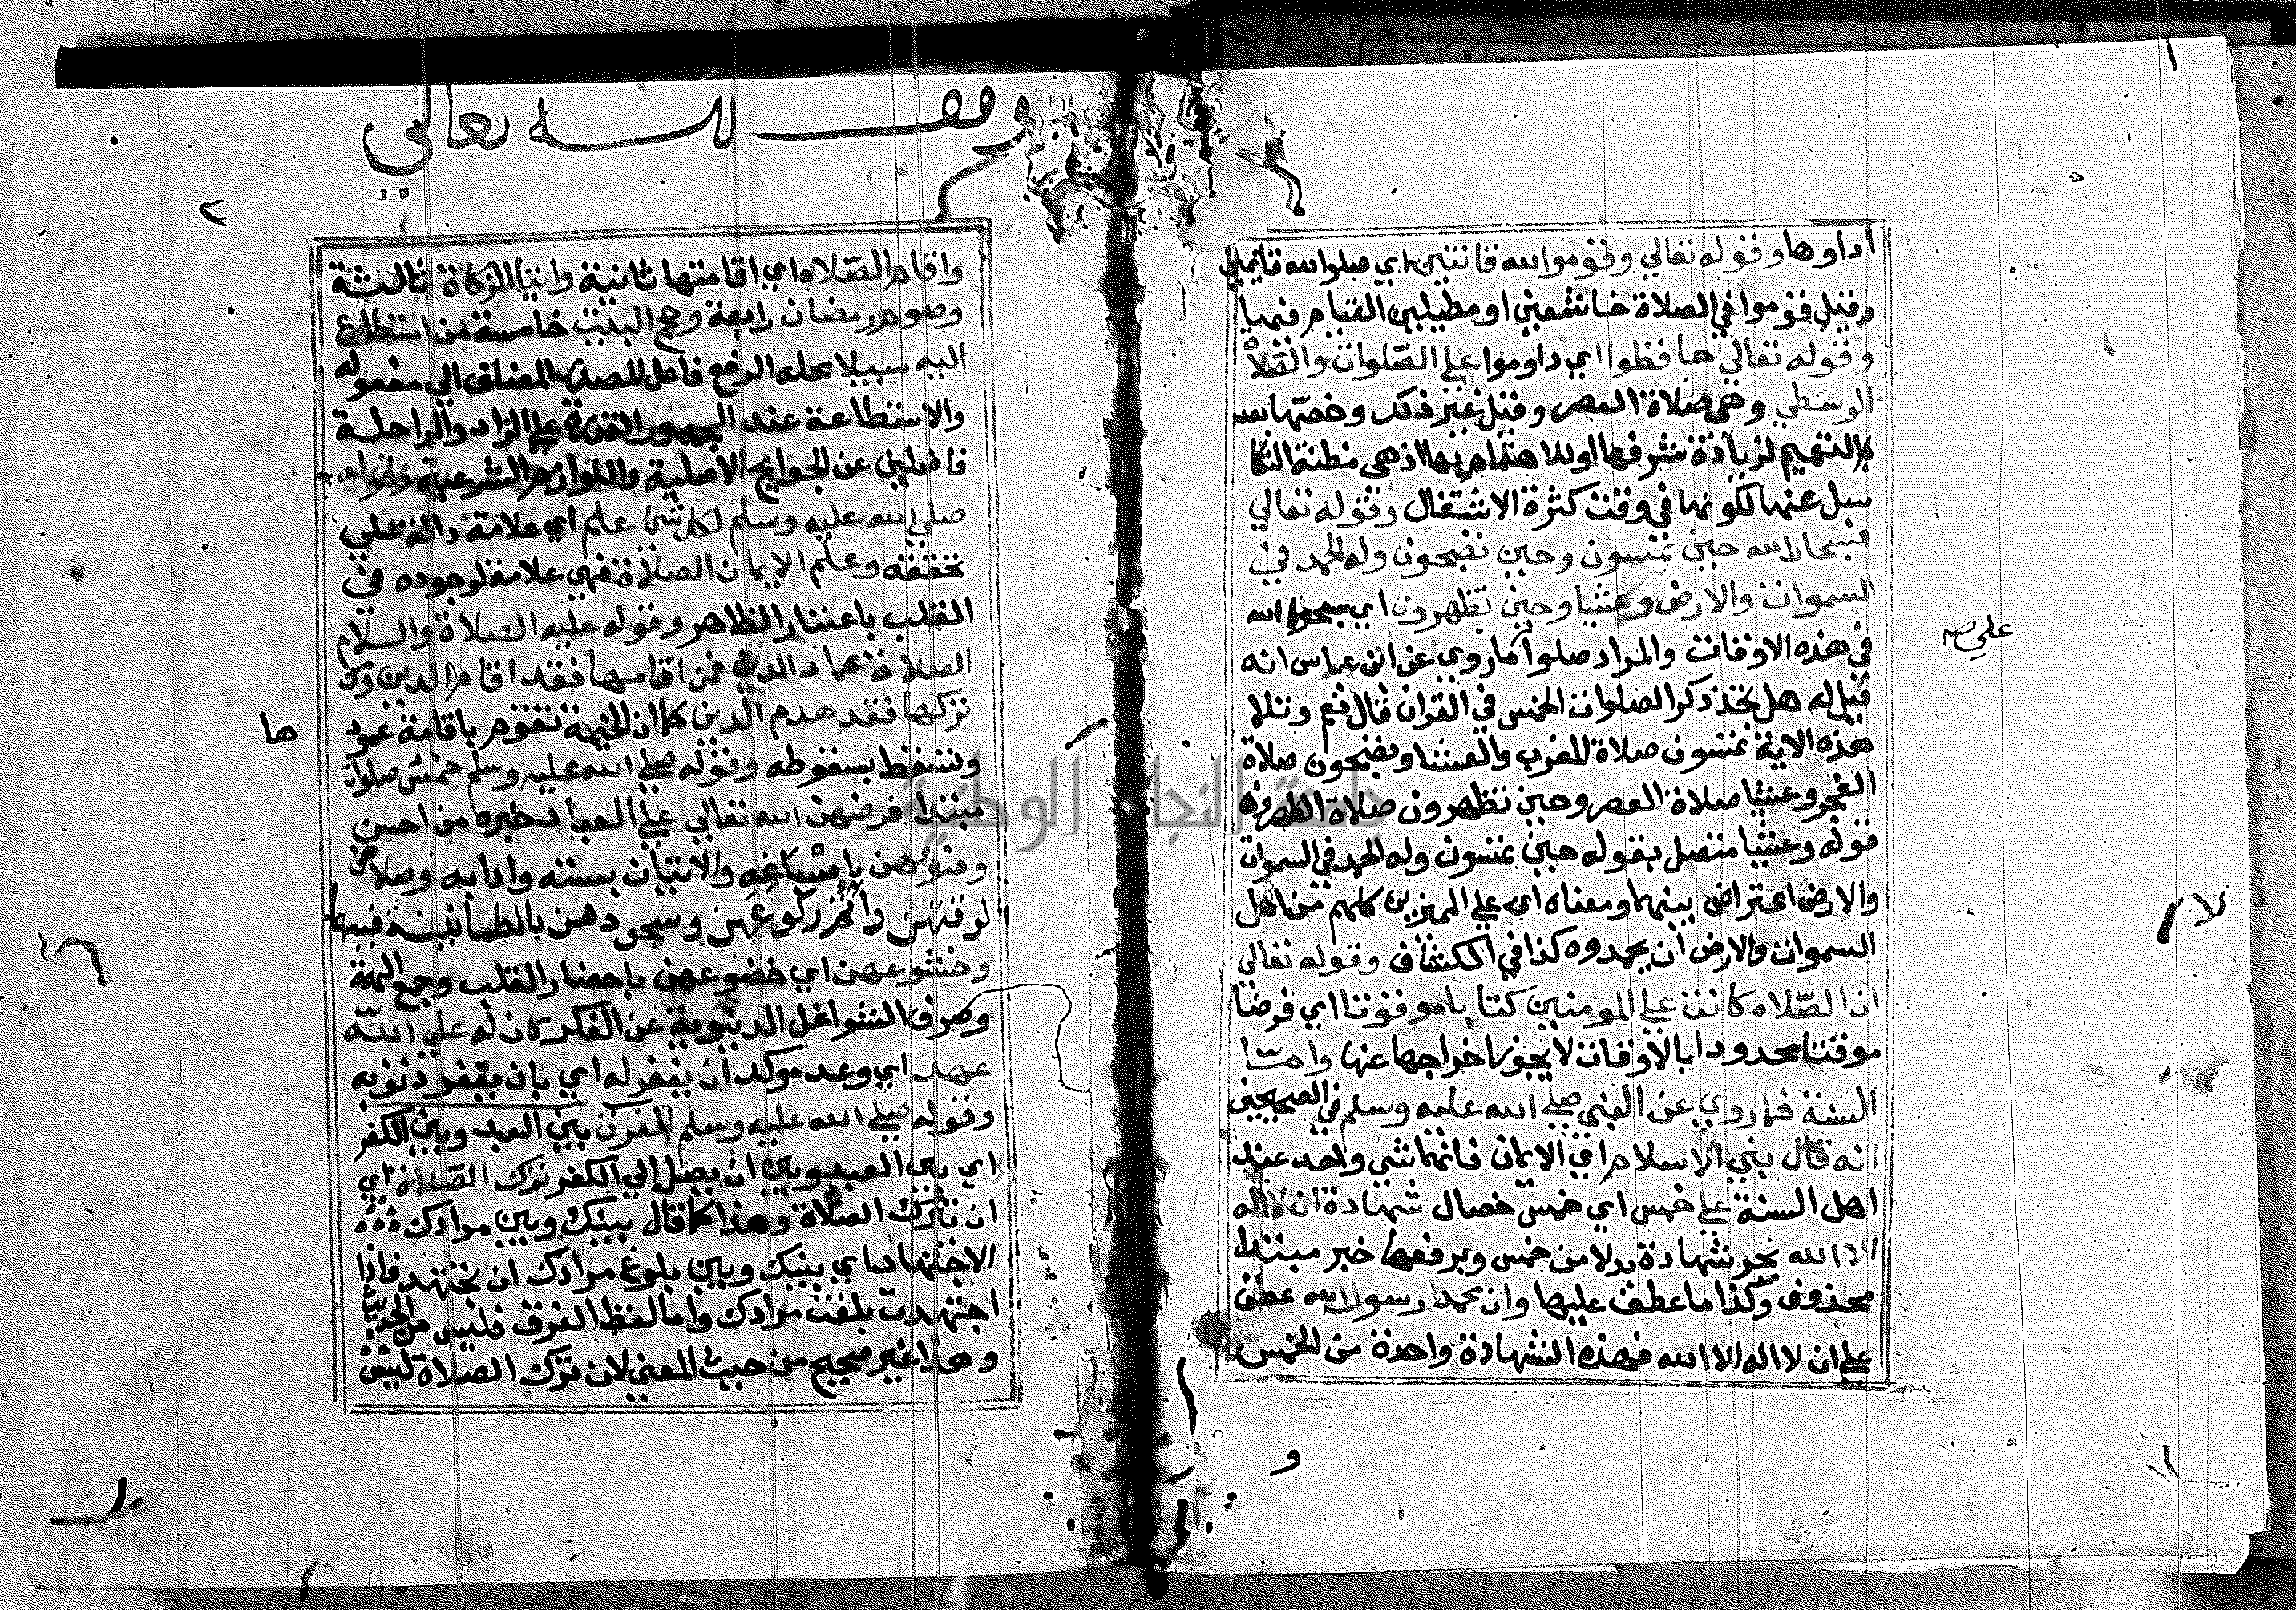 اداوها وقوله تعالي وقوموا لله قانتين اي صلوا لله قائمين
وقيل قوموا في الصلاة خاشعين او مطيلين القيام فيها
وقوله تعالي حافظوا اي داوموا علي الصلوات والصلاة
الوسطي وهي صلاة العصر وقيل غير ذلك وخصها بعد
التعميم لزيادة شرفها او للاهتمام بها اذ هي مظنة التكا
سل عنها لكونها في وقت كثرة الاشتغال وقوله تعالي
فسبحان الله حين تمسون وحين تصبحون وله الحمد في
السموات والارض وعشيا وحين تظهرون اي سبحوا الله
في هذه الاوقات والمراد صلوا لما روي عن ابن عباس انه
قيل له هل تجد ذكر الصلوات الخمس في القران قال نعم وتلا
هذه الاية تمسون صلاة المغرب والعشا وتصبحون صلاة
الفجر وعشيا صلاة العصر وحين تظهرون صلاة الظهر
قوله وعشيا متصل بقوله حين تمسون وله الحمد في السموات
والارض اعتراض بينهما ومعناه ان علي المميزين كلهم من اهل
السموات والارض ان يحمدوه كذا في الكشاف وقوله تعالي
ان الصلاه كانت علي المومنين كتابا موقوتا اي فرضا
موقتا محدودا بالاوقات لا يجوز اخراجها عنها واما
السنة فما روي عن النبي صلي الله عليه وسلم في الصحيحين
انه قال بني الاسلام اي الايمان فانهما شي واحد عند
اهل السنة علي خمس اي خمس خصال شهادة ان لا اله
الا الله بجر شهادة بدلا من خمس وبرفعها خبر مبتدا
محذوف وكذا ما عطف عليها وان محمدا رسول الله عطف
علي ان لا اله الا الله فهذه الشهادة واحدة من الخمس
علي
و
وقف لله تعالي
٢
واقام الصلاه اي اقامتها ثانية وايتا الزكاة ثالثة
وصوم رمضان رابعة وحج البيت خامسة من استطاع
اليه سبيلا محله الرفع فاعل للمصدر المضاف الي مفعوله
والاستطاعة عند الجمهور القدرة علي الزاد والراحلة
فاضلين عن الحوايج الاصلية واللوازم الشرعية وقوله
صلي الله عليه وسلم لكل شئ علم اي علامة دالة علي
تحققه وعلم الايمان الصلاة فهي علامة لوجوده في
القلب باعتبار الظاهر وقوله عليه الصلاة والسلام
الصلاة عماد الدين فمن اقامها فقد اقام الدين ومن
تركها فقد هدم الدين كما ان الخيمة تقوم باقامة عمود
ها
وتسقط بسقوطه وقوله صلي الله عليه وسلم خمس صلوات
مبتدا فرضهن الله تعالي علي العباد خبره من احسن
وضوهن باسباغه والاتيان بسننه وادابه وصلاهن
لوقتهن واتم ركوعهن وسجودهن بالطمانينة فيها
وخشوعهن اي خضوعهن باحضار القلب وجمع الهمة
وصرف الشواغل الدينوية عن الفكر كان له علي الله
عهد اي وعد موكد ان يغفر له اي بان يغفر ذنوبه
وقوله صلي الله عليه وسلم الفرق بين العبد وبين الكفر
اي بين العبد وبين ان يصل الي الكفر ترك الصلاة اي
ان تارك الصلاة وهذا كما قال بينك وبين مرادك
الاجتهاد اي بينك وبين بلوغ مرادك ان تجتهد فاذا
اجتهدت بلغت مرادك واما لفظ الفرق فليس من الحديث
وهذا غير صحيح من حيث المعني لان ترك الصلاة ليس
جامعة النجاح الوطنية